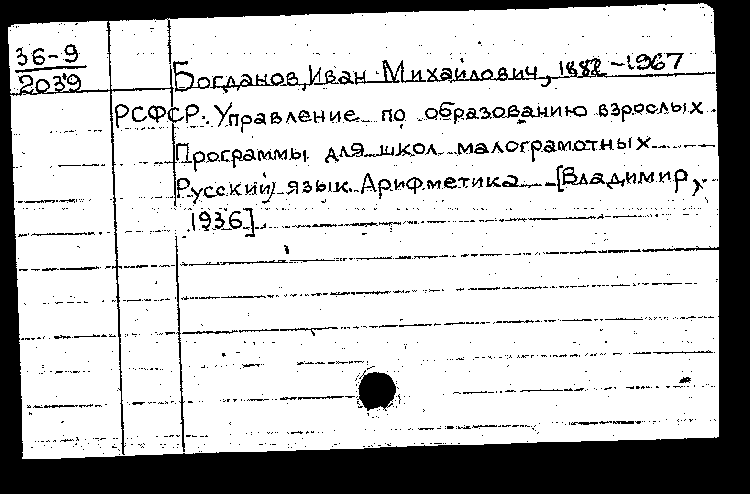 36-9
2039
Богданов, Иван Михайлович, 1882-1967
РСФСР. Управление по образованию взрослых.
Программы для школ малограмотных
Русский язык. Арифметика [Владимир,
1936].